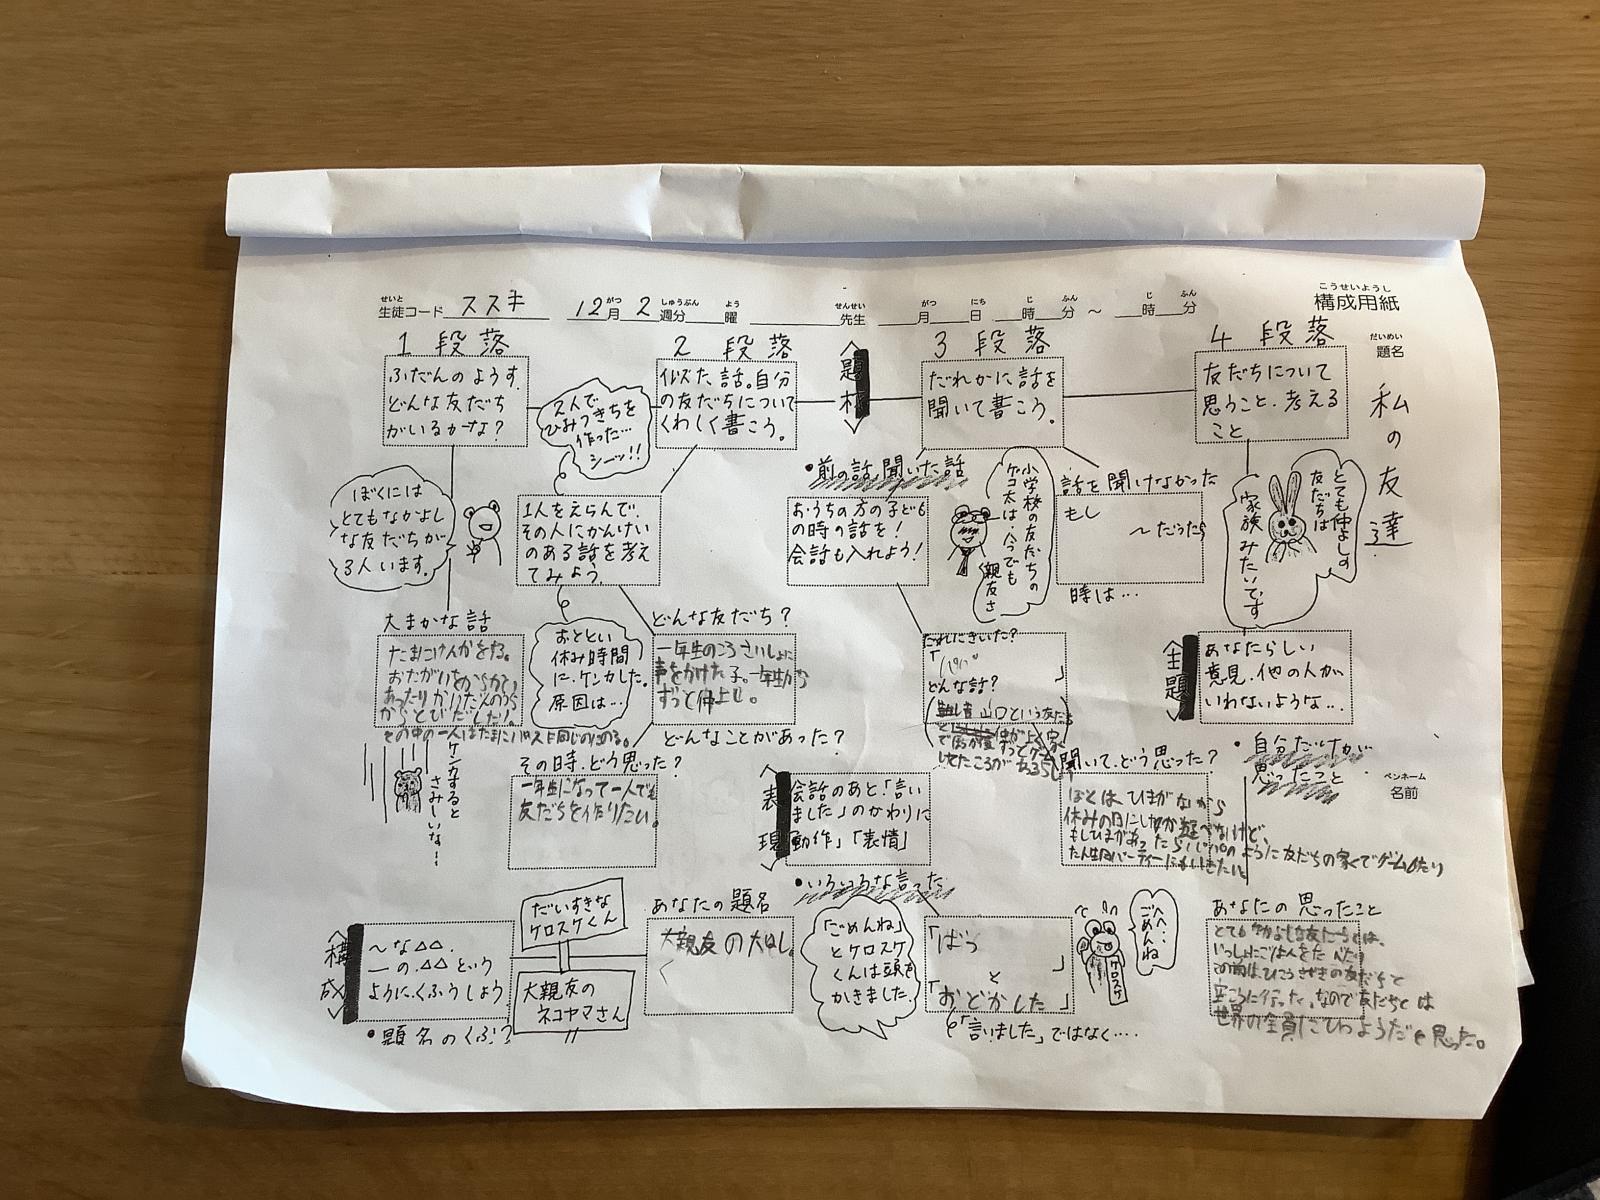 構成用紙
こうせいようし
生徒コード ススキ 12月2週分 曜 先生 月 日 時 分 ～ 時 分
せいと がつ しゅうぶん よう せんせい がつ にち じ ふん じ ふん
題名
だいめい
私の友達
1段落
ふだんのようす。
どんな友だち
がいるかな?
ぼくには
とてもなかよし
な友だちが
3人います。
大まかな話
たまにけんかをする。
おたがいをからかい
あったりかけだんのうら
からとびだしたり。
ケンカすると
さみしいな…!
2段落
似た話。自分
の友だちについて
くわしく書こう。
2人で
ひみつきちを
作った…
シーッ!!
1人をえらんで、
その人にかんけい
のある話を考え
てみよう
おととい
休み時間
に、ケンカした。
原因は…
どんな友だち?
一年生のころさいしょに
声をかけた子。一年生から
ずっと仲よし。
どんなことがあった?
その時、どう思った?
一年生になって一人でも
友だちを作りたい。
題材
3段落
だれかに話を
聞いて書こう。
・前の話、聞いた話
おうちの方の子ども
の時の話を!
会話も入れよう!
小学校の友だちの
ケコ太は、今でも
親友さ
話を聞けなかった
もし
～だったら
時は…
だれにきいた?
「パパ」
どんな話?
山口という友だち
聞いて、どう思った?
ぼくはひまがないから
休みの日にしか遊べないけど、
もしひまがあったらパパのように友だちの家でゲームしたり
たん生日パーティーにもいきたい。
4段落
友だちについて
思うこと、考える
こと
とても仲よしの
友だちは
家族みたいです
主題
あなたらしい
意見、他の人が
いわないような…
・自分だけが
思ったこと
ペンネーム
名前
表現
会話のあと「言い
ました」のかわりに
「動作」「表情」
・いろいろな言った
「ごめんね」
とケロスケ
くんは頭を
かきました。
「ばっ
」
と
「おどかした」
「言いました」ではなく…
へへ…
ごめんね
ケロスケ
あなたの思ったこと
とてもなかよしな友だちとは、
世界の全員にひつようだと思った。
構成
～な△△、
―の、△△という
ように、くふうしよう
・題名のくふう
だいすきな
ケロスケくん
大親友の
ネコヤマさん
あなたの題名
大親友の大はし。